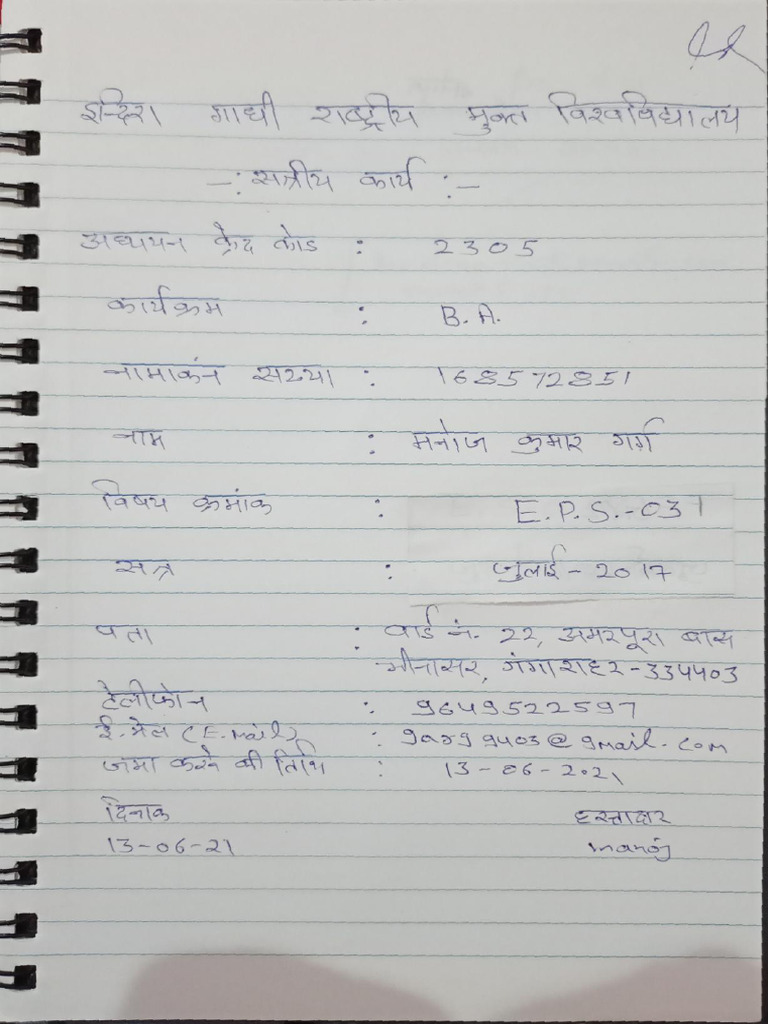 इन्दिरा गाधी राष्ट्रीय मुक्त विश्वविद्यालय
-: सत्रीय कार्य :-
अध्ययन केन्द्र कोड : 2305
कार्यक्रम : B.A.
नामाकंन सख्या : 168572851
नाम : मनोज कुमार गर्ग
विषय क्रमांक : E.P.S.-031
सत्र : जुलाई - 2017
पता : वार्ड नं. 22, अमरपूरा बास
भीनासर, गंगाशहर-334403
टेलीफोन : 9649522597
ई.मेल (E.mail) : garg9403@gmail.com
जमा करने की तिथि : 13-06-2021
दिनाक हस्ताक्षर
13-06-21 manoj